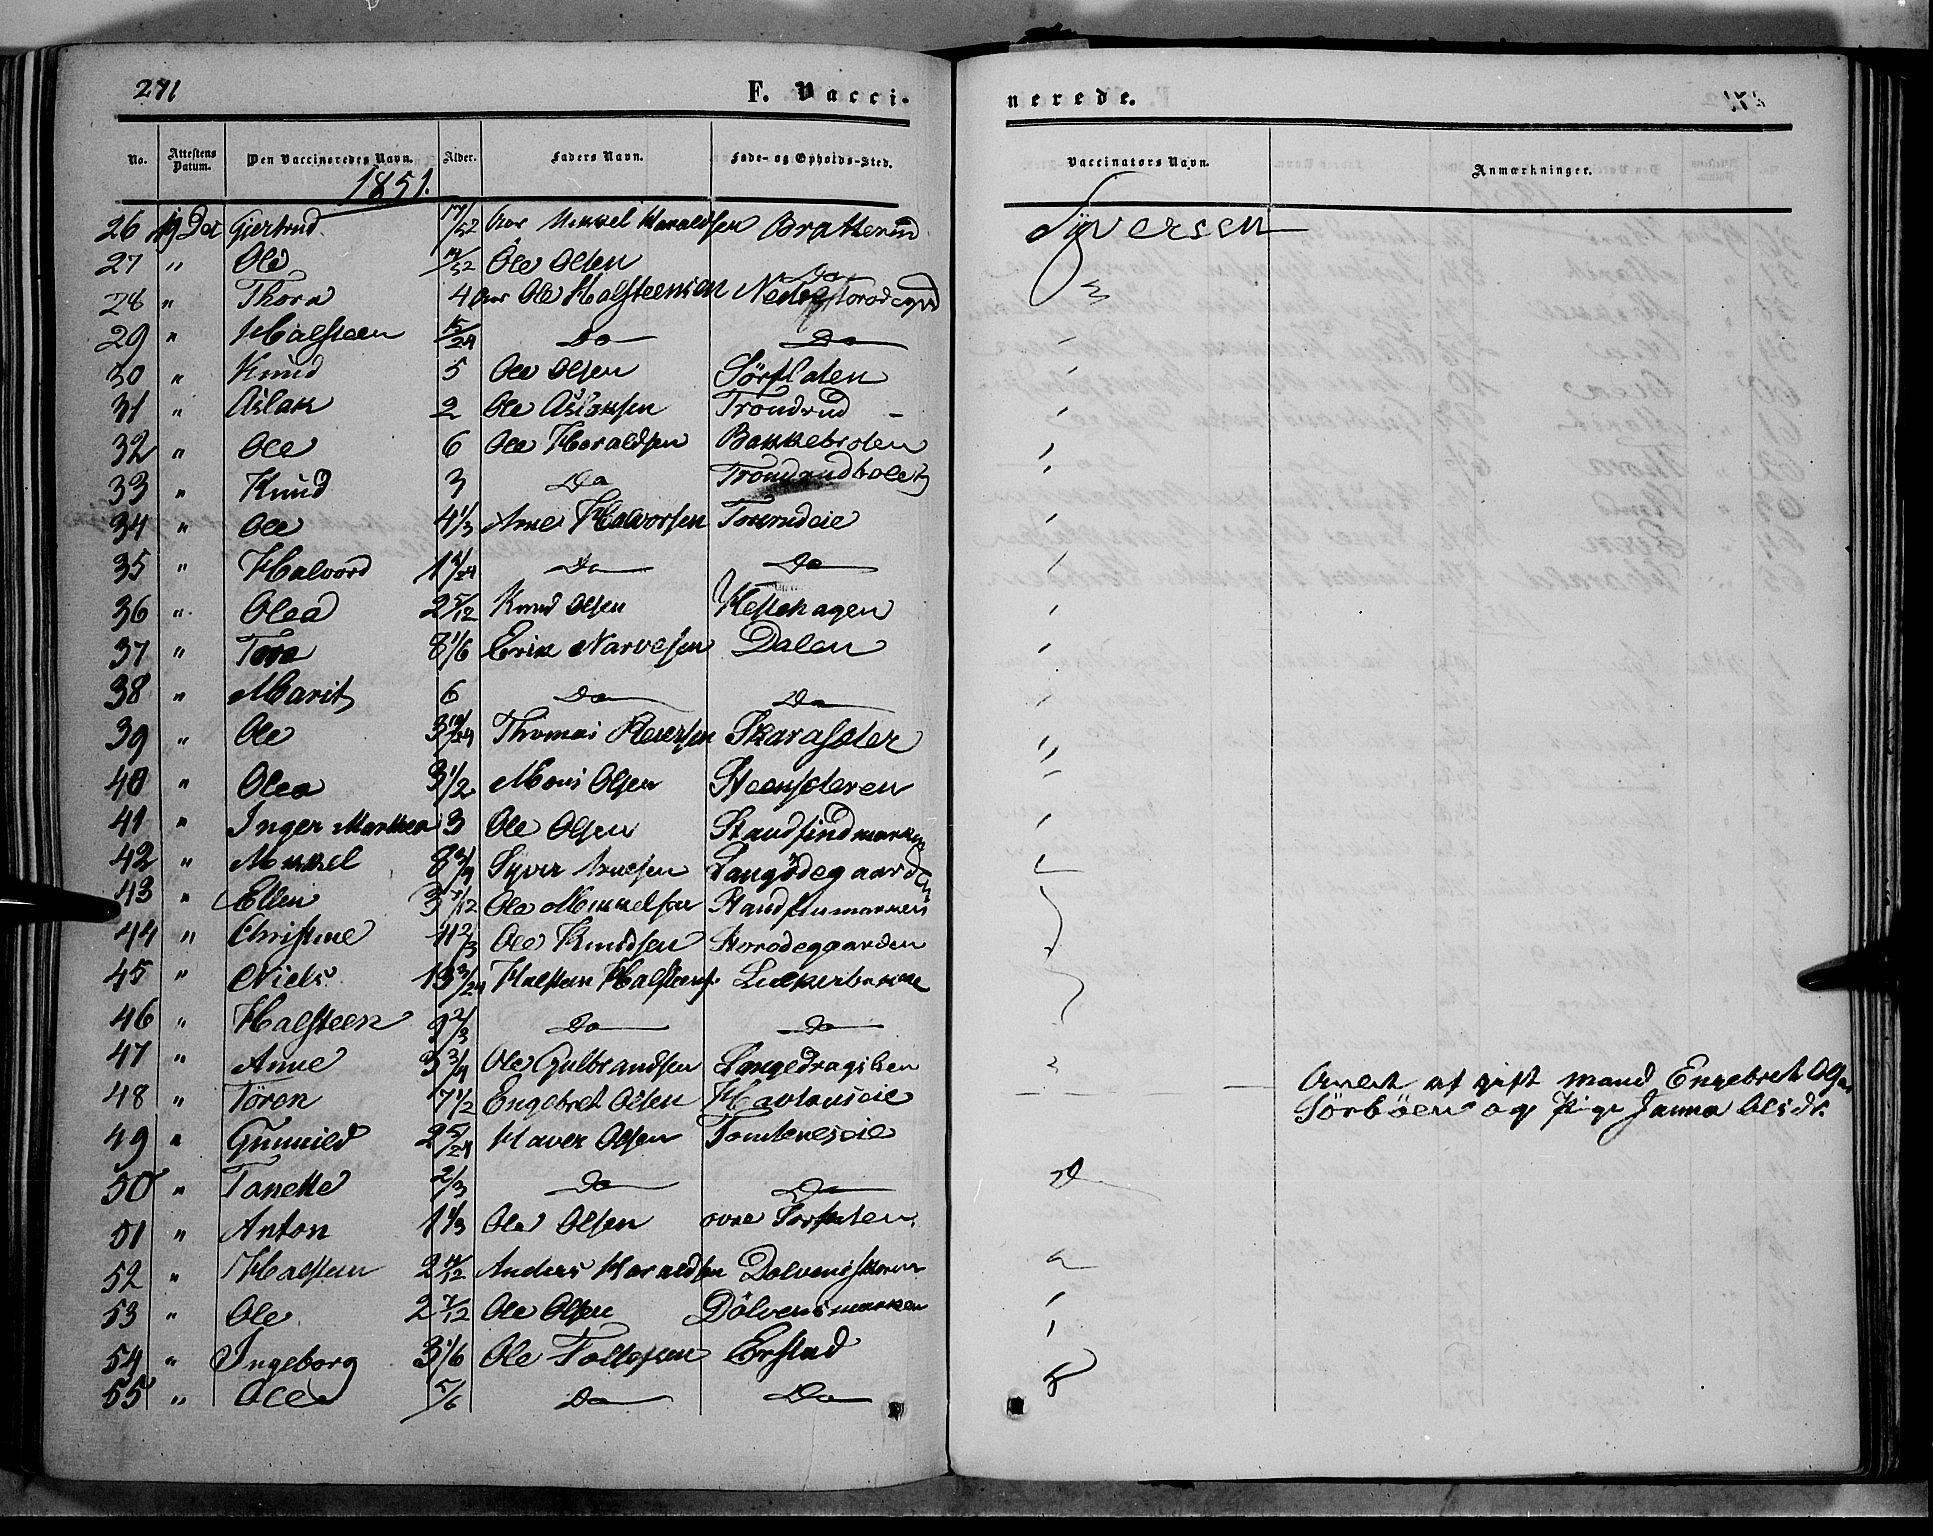 271
F. Vacci-
nerede.
No. Attestens Datum. Den Vaccineredes Navn. Alder. Faders Navn. Føde- og Opholds-Sted. Vaccinators Navn. Anmærkninger.
1851.
26 19 Oct Gjertrud 17/52 Aar Mikkel Haraldsen Braterud Syversen
27 " Ole /52 Ole Olsen Do
28 " Thora 4 Aar Ole Halsteensen Nedre
29 " Halsteen 15/24 Do Do
30 " Knud 5 Ole Olsen Sørflaten
31 " Aslak 2 Ole Aslaksen Trondrud
32 " Ole 6 Ole Haraldsen Bakkebroten
33 " Knud 3 Do
34 " Ole 4 1/3 Arne Halvorsen Torerudeie
35 " Halvord 1 /24 Do Do
36 " Olea 2 5/12 Knud Olsen Kettehagen
37 " Tora 8 1/6 Erik Narvesen Dalen
38 " Marit 6 Do Do
39 " Ole 3 /24 Thomas Pedersen
40 " Olea 3 1/2 Mons Olsen
41 " Inger Marthea 3 Ole Olsen
42 " Mikkel 8 3/4 Syver Arnesen
43 " Ellen 3 7/12 Ole Mikkelsen
44 " Christine 11 2/3 Ole Knudsen
45 " Niels 13 /24 Halsten Halsteens.
46 " Halsteen 9 2/3 Do Do
47 " Anne 3 3/4 Ole Gulbrandsen
48 " Tören 7 1/2 Engebret Olsen
Avlet af gift mand Engebret Olsen
Sörböen og Pige Janna Olsdr.
49 " Gunnild 2 5/24 Haver Olsen
50 " Tonette 2/3 Do Do
51 " Anton 1 1/3 Ole Olsen ovre Sorflaten
52 " Halsten 2 /12 Anders Haraldsen
53 " Ole 2 7/12 Ole Olsen Dölvensmarken
54 " Ingeborg 3 1/6 Ole Tollefsen Erstad
55 " Olea 5/6 Do Do